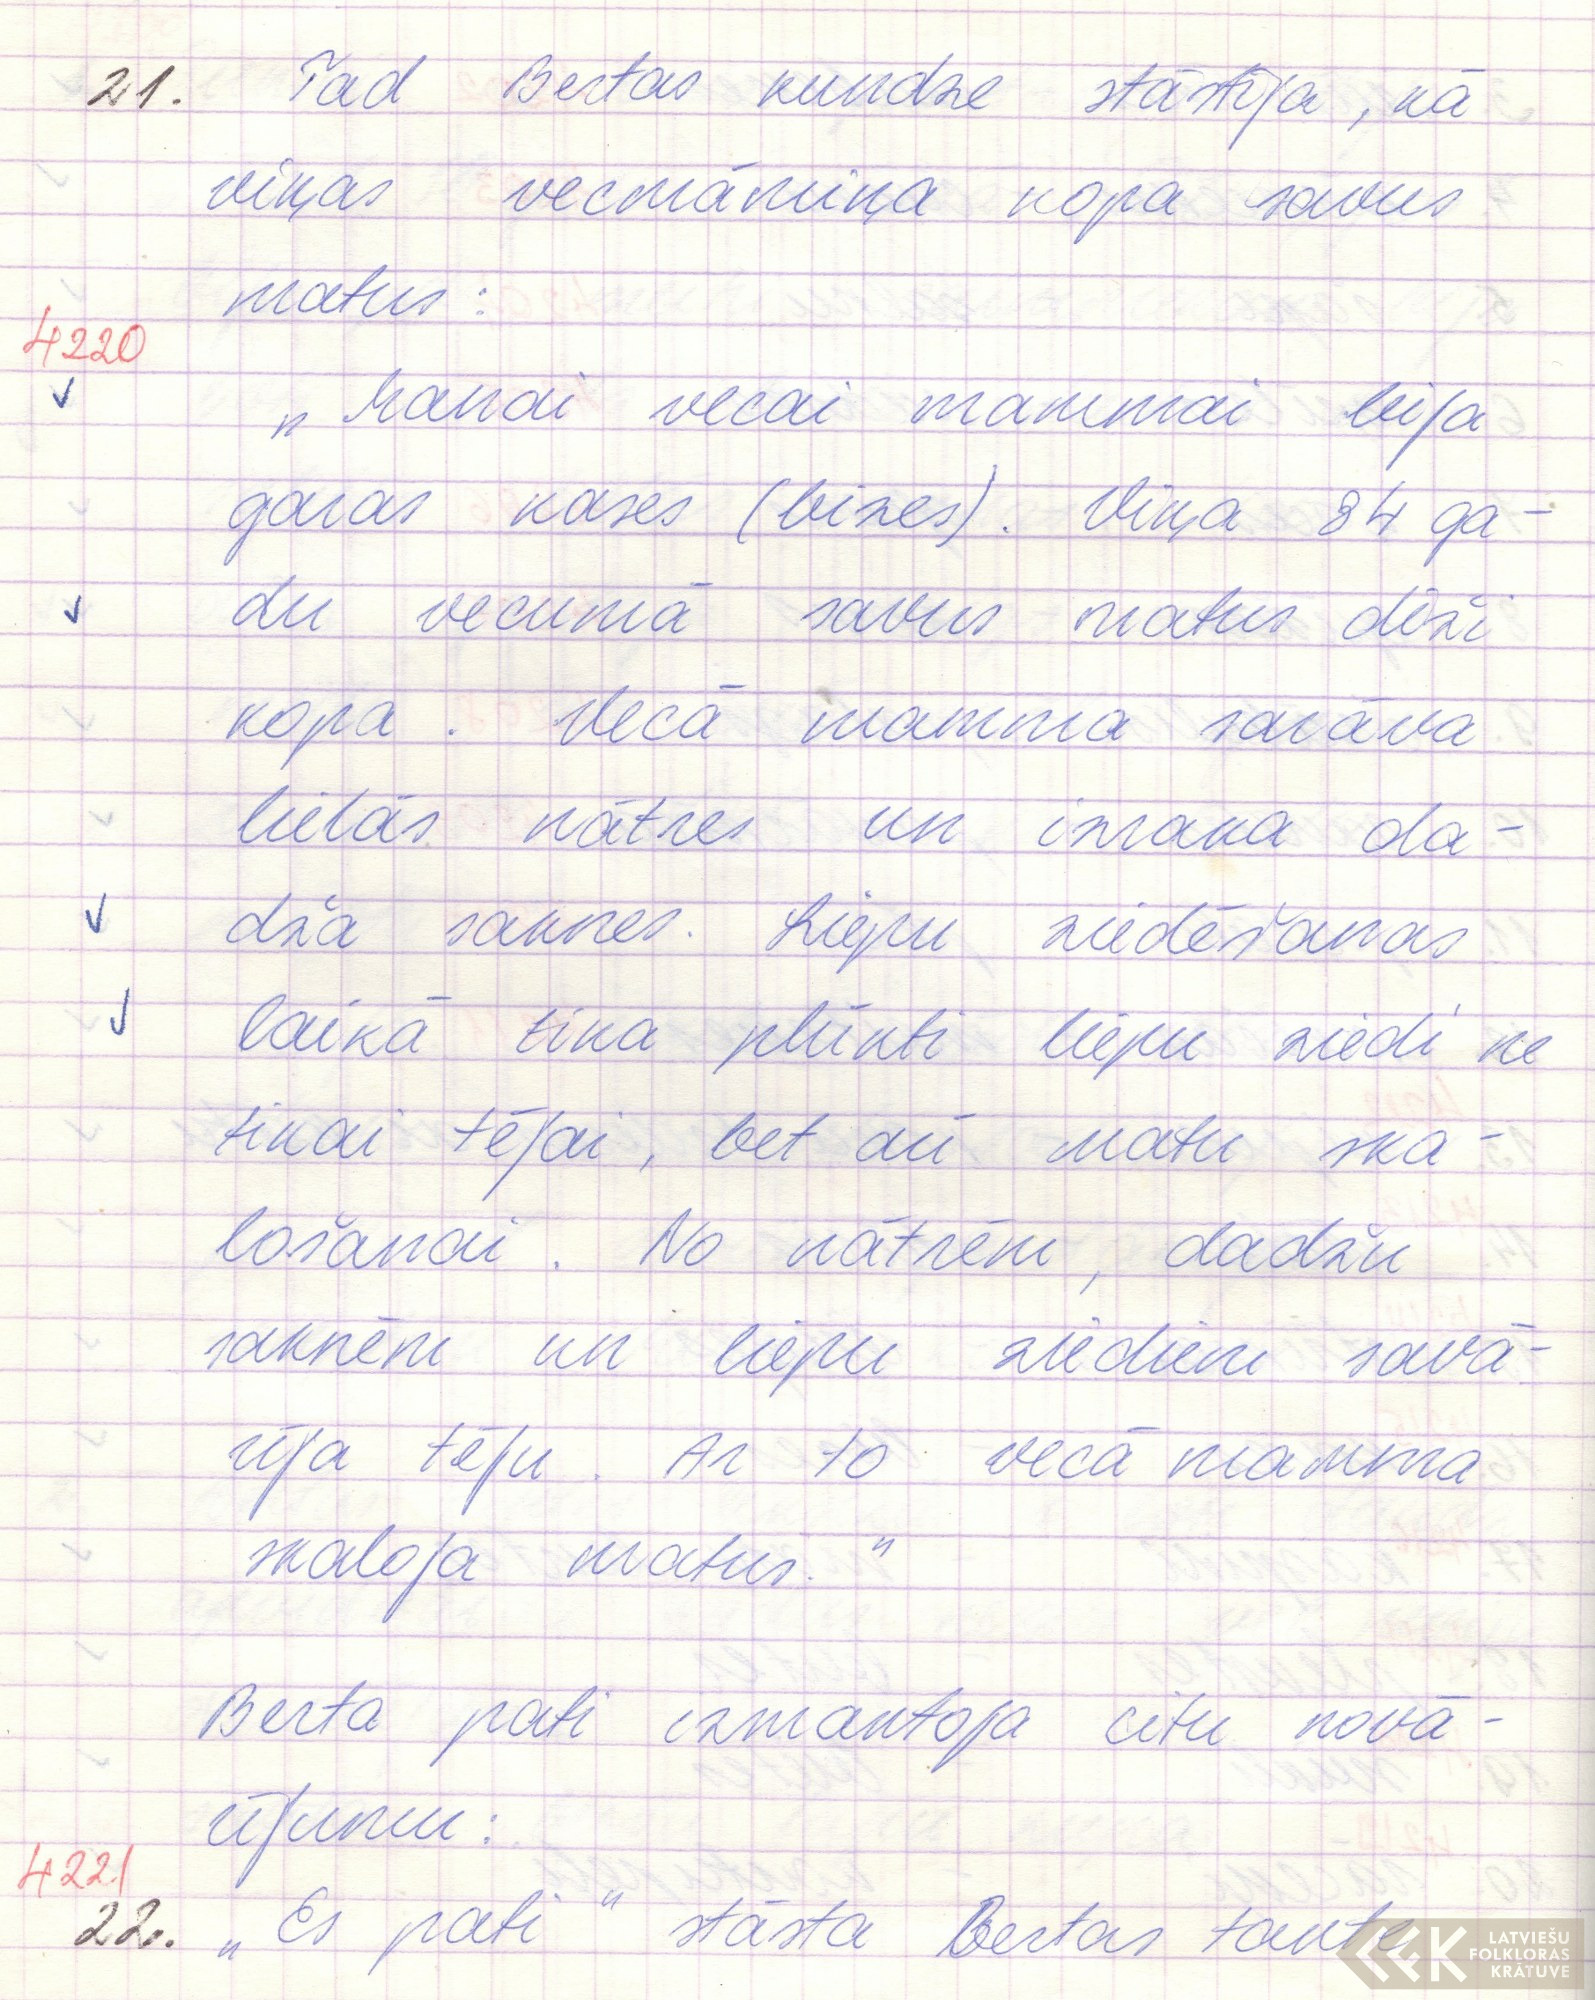 21. Tad Bertas kundze stāstīja, kā
viņas vecmāmiņa kopa savus
matus:
4220
„Manai vecai mammai bija
garas kases (bizes). Viņa 84 ga-
du vecumā savus matus dikti
kopa. Vecā mamma sarāva
lielās nātres un izraka da-
dža saknes. Liepu ziedēšanas
laikā tika plūkti liepu ziedi ne
tikai tējai, bet arī matu ska-
lošanai. No nātrēm, dadžu
saknēm un liepu ziediem savā-
rīja tēju. Ar to vecā mamma
skaloja matus."
Berta pati izmantoja citu novā-
rījumu:
4221
22. „Es pati" stāsta Bertas tante
LATVIEŠU
FOLKLORAS
KRĀTUVE